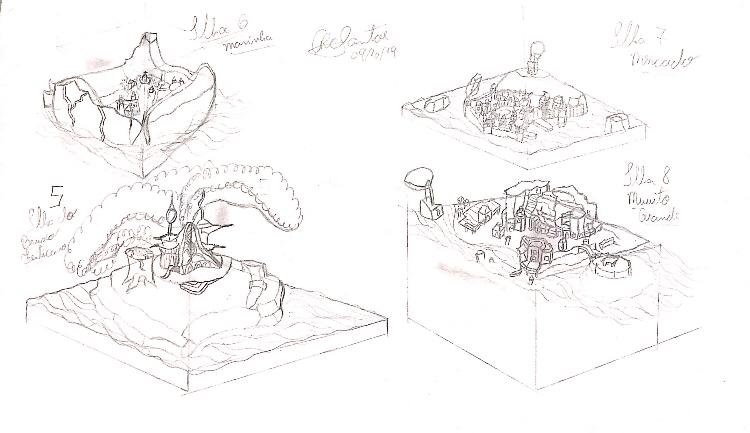 Ilha 6
Marinha
Santos
09/10/19
Ilha 7
Mercado
5
Ilha do
Ilha 8
Muito
Grande